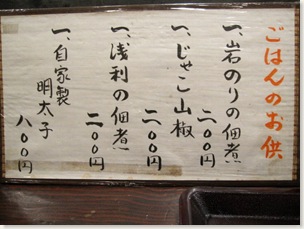 ごはんのお供
一、岩のりの佃煮
二〇〇円
一、じゃこ山椒
二〇〇円
一、浅利の佃煮
二〇〇円
一、自家製
明太子
八〇〇円